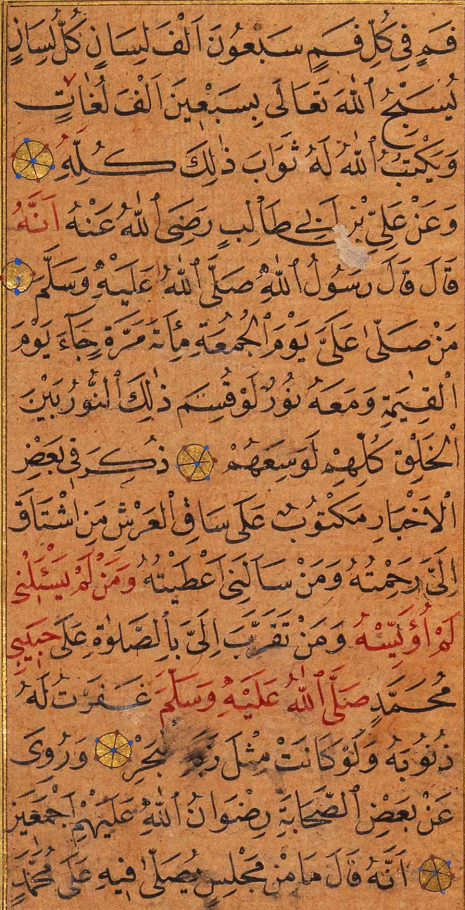 فَمٍ فِي كُلِّ فَمٍ سَبْعُونَ اَلْفَ لِسَانٍ كُلُّ لِسَانٍ
يُسَبِّحُ ٱللهَ تَعَالَى بِسَبْعِينَ اَلْفَ لُغَاتٍ
وَيَكْتُبُ ٱللهُ لَهُ ثَوَابَ ذٰلِكَ كُلِّهِ
وَعَنْ عَلِيِّ بْنِ اَبِي طَالِبٍ رَضِيَ ٱللهُ عَنْهُ اَنَّهُ
قَالَ قَالَ رَسُولُ ٱللهِ صَلَّى ٱللهُ عَلَيْهِ وَسَلَّمَ
مَنْ صَلَّى عَلَيَّ يَوْمَ ٱلْجُمُعَةِ مِأَةَ مَرَّةٍ جَآءَ يَوْمَ
ٱلْقِيٰمَةِ وَمَعَهُ نُورٌ لَوْ قُسِمَ ذٰلِكَ ٱلنُّورُ بَيْنَ
ٱلْخَلْقِ كُلِّهِمْ لَوَسِعَهُمْ ذُكِرَ فِي بَعْضِ
ٱلْاَخْبَارِ مَكْتُوبٌ عَلَى سَاقِ ٱلْعَرْشِ مَنِ ٱشْتَاقَ
اِلَيَّ رَحِمْتُهُ وَمَنْ سَاَلَنِي اَعْطَيْتُهُ وَمَنْ لَمْ يَسْئَلْنِي
لَمْ اُؤَيِّسْهُ وَمَنْ تَقَرَّبَ اِلَيَّ بِٱلصَّلٰوةِ عَلَى حَبِيبِي
مُحَمَّدٍ صَلَّى ٱللهُ عَلَيْهِ وَسَلَّمَ غَفَرْتُ لَهُ
ذُنُوبَهُ وَلَوْ كَانَتْ مِثْلَ زَبَدِ ٱلْبَحْرِ وَرُوِيَ
عَنْ بَعْضِ ٱلصَّحَابَةِ رِضْوَانُ ٱللهِ عَلَيْهِمْ اَجْمَعِينَ
اَنَّهُ قَالَ مَا مِنْ مَجْلِسٍ يُصَلَّى فِيهِ عَلَى مُحَمَّدٍ